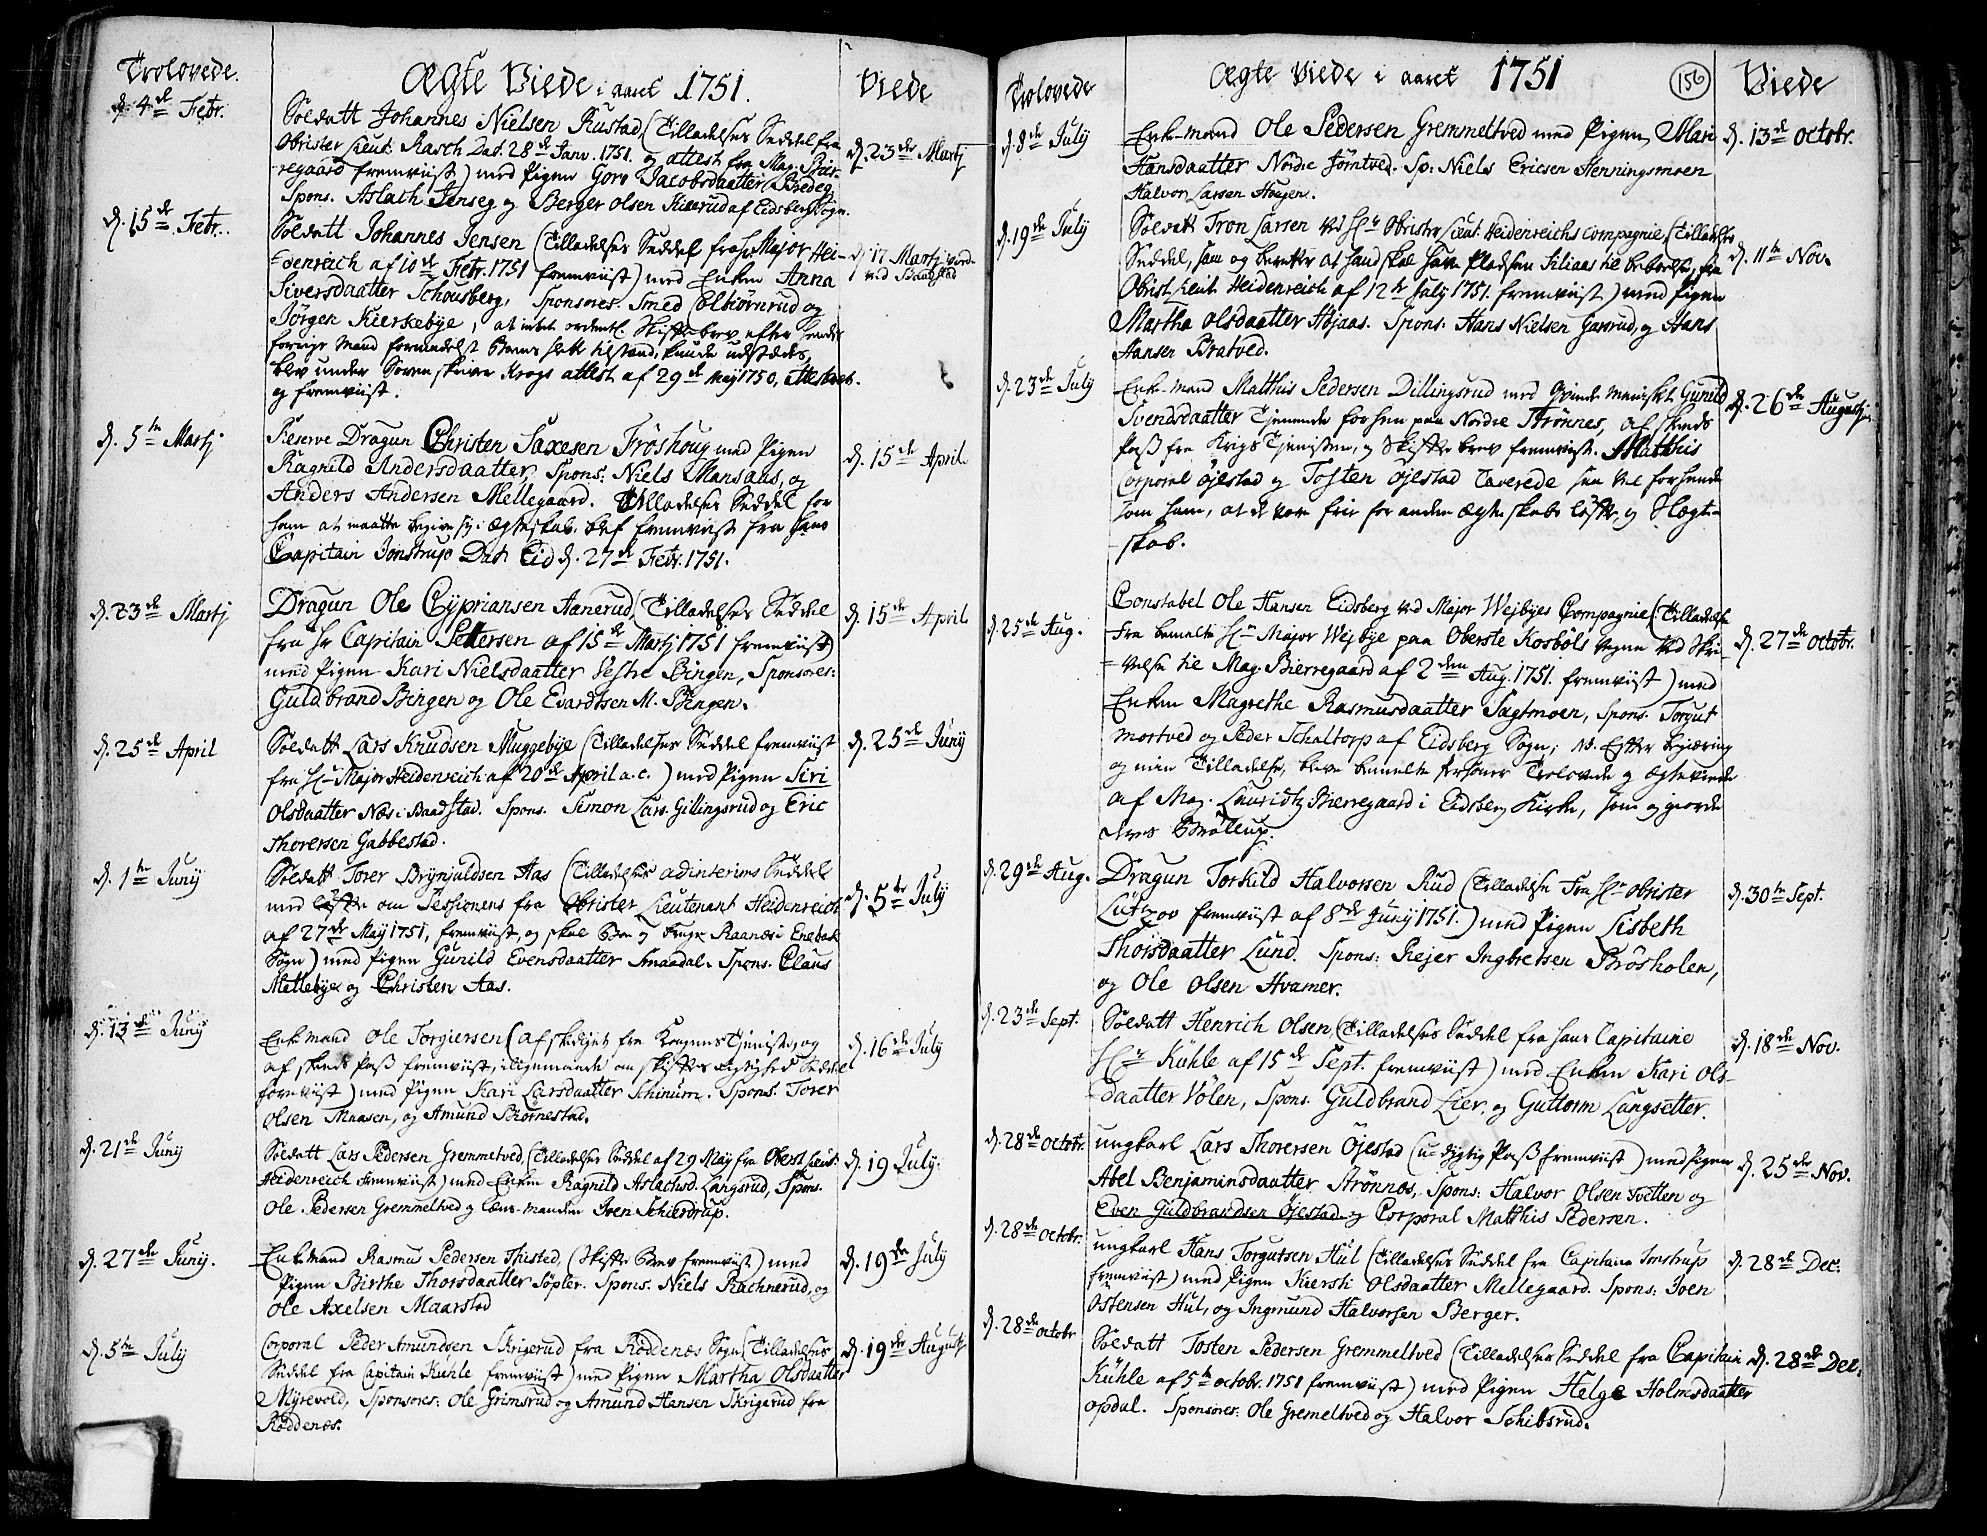 Trolovede.
Ægte Viede i aaret 1751.
Viede
d. 4de Febr.
Soldatt Johannes Nielsen Rustad, (Tilladelses Seddel fra
Obrister Lieut: Rasch Dat: 28de Janv. 1751. og attest fra Mag. Bier-
regaard fremviist) med Pigen Goro Jacobsdaatter Bredeg
Spons. Aslach Jenseg og Berger Olsen Kiærud af Eidsberg Sogn.
d. 23de Martj
d. 15de Febr.
Soldatt Johannes Jensen (Tilladelses Seddel fra Hr Major Hei-
denreich af 10de Febr. 1751 fremviist) med Enken Anna
Siversdaatter Schousberg, Sponsores. Smed Colbiörnrud og
Jörgen Kierkebye, at intet ordentl. Skiftebrev efter hendes
forrige Mand formedelst Boens slette tilstand, kunde udstædes,
blev under Sorenskriver Krogs attest af 29de Maij 1750, attesteret.
og fremviist.
d. 17 Martj viede
ved Baastad
d. 5te Martj
Reserve Dragun Christen Saxesen Fröshoug med Pigen
Ragnild Andersdaatter, Spons: Niels Mansaas, og
Anders Andersen Mellegaard. Tilladelses Seddel for
ham at maatte begive sig i Ægteskab blef fremviist fra hans
Capitain Jonstrup Dat: Eid d. 27de Febr. 1751.
d. 15de April
d. 23de Martj
Dragun Ole Cypriansen Aanerud (Tilladelses Seddel
fra Hr Capitain Pettersen af 15de Martj 1751 fremviist)
med Pigen Kari Nielsdaatter Vestre Bingen, Sponsores:
Guldbrand Bingen og Ole Evardtsen M. Bingen.
d. 15de April
d. 25de April
Soldatt Lars Knudsen Muggebye (Tilladelses Seddel fremviist
fra Hr Major Heidenreich af 20de April a. c.) med Pigen Siri
Olsdaatter Næs i Baadstad. Spons. Simon Lars. Gillingsrud og Eric
Thorersen Gabbestad.
d. 25de Junij
d. 1te Junij
Soldatt Torer Brynjuldsen Aas (Tilladelses adinterims Seddel
med löfte om Sessionens fra Obrister Lieutenant Heidenreich
af 27de Maij 1751, fremviist, og skal Boe og Bruge Raanæs i Enebak
Sogn) med Pigen Gunild Evensdaatter Smaadal. Spons. Claus
Mellebye og Christen Aas.
d. 5te Julij
d. 13de Junij
Enkemand Ole Torgiersen (afskediget fra Kongens Tjeniste, og
afskeds Pass fremviist, iligemaade om skiftes rigtighed Seddel
fremviist) med Pigen Kari Larsdaatter Schinum. Spons. Torer
Olsen Maasen, og Amund Biörnestad.
d. 16de Julij
d. 21de Junij
Soldatt Lars Pedersen Gremmeltved, (Tilladelses Seddel af 29 Maij fra Oberst Lieut:
Heidenreich fremviist) med Enken Ragnild Aslachsd. Langsrud, Spons.
Ole Pedersen Gremmeltved og Lens-manden Iver Schierdrup.
d. 19 Julij.
d. 27de Junij.
Enkemand Rasmus Pedersen Thistad, (Skifte Brev fremviist) med
Pigen Birthe Thorsdaatter Söpler. Spons. Niels Rachnerud, og
Ole Axelsen Maarstad
d. 19de Julij
d. 5te Julij
Corporal Peder Amundsen Skrigerud fra Röddenæs Sogn (Tilladelses
Seddel fra Capitain Kuhle fremviist) med Pigen Martha Olsdaatter
Myrevold, Sponsores: Ole Grimsrud og Amund Hansen Skrigerud fra
Röddenæs.
d. 19de Augustj
Trolovede
Ægte Viede i aaret 1751
156
Viede
d. 8de Julij
Enke-mand Ole Pedersen Gremmeltved med Pigen Mari
Hansdaatter Nordre Jörntved. Sp: Niels Ericsen Henningsmoen
Halvor Larsen Haugen.
d. 13de Octobr.
d. 19de Julij
Soldatt Tron Larsen ved Hr Obrister Lieut: Heidenreichs Compagnie, (Tilladelses
Seddel, som og beretter at hand skal have Pladsen Liliaas til beboelse, fra
Obrist Lieut. Heidenreich af 12te Julij 1751. fremviist) med Pigen
Martha Olsdaatter Höjaas. Spons: Hans Nielsen Gasrud, og Hans
Hansen Bratved.
d. 11te Nov.
d. 23de Julij
Enke-mand Matthis Pedersen Dillingsrud med Qvinde Menniskt Gunild
Svendsdaatter Tjenende forhen paa Nordre Strönnes, afskeds
Pass fra Krigs Tjenisten, og Skifte brev fremviist. Matthis
Corporal Öjestad og Tosten Öjestad Caverede saa vel for hende
som ham, at de vare frie for anden Ægteskabs löfte, og Slægt-
skab.
d. 26de Augustj
d. 25de Aug.
Constabel Ole Hansen Eidsberg ved Major Wejbyes Compagnie, (Tilladelse
fra bemelte Hr Major Wejbye paa Oberste Kosböls vegne ved Skri-
velse til Mag. Bierregaard af 2den Aug. 1751. fremviist) med
Enken Magrethe Rasmusdaatter Sagtmoen, Spons. Torgut
Mostved og Peder Schaltorp af Eidsberg Sogn; NB. Efter begiæring
og min Tilladelse, bleve bemelte Personer Trolovede og Ægteviede
af Mag. Lauridtz Bierregaard i Eidsberg Kirke, som og giorde
deres Bröllup.
d. 27de Octobr.
d. 29de Aug.
Dragun Torkild Halvorsen Rud (Tilladelse fra Hr Obrister
Lützov fremviist af 8de Junij 1751.) med Pigen Lisbeth
Thorsdaatter Lund. Spons: Rejer Ingbretsen Brösholen,
og Ole Olsen Hvamer.
d. 30te Sept.
d. 23de Sept.
Soldatt Henrich Olsen, (Tilladelses Seddel fra hans Capitaine
Hr Kühle af 15de Sept. fremviist) med Enken Kari Ols-
daatter Völen, Spons. Guldbrand Lier, og Guttorm Langsetter.
d. 18de Nov.
d. 28de Octobr.
ungkarl Lars Thorersen Öjestad (u-dygtig Pass fremviist) med Pigen
Abel Benjaminsdaatter Strönnes, Spons: Halvor Olsen Tvetten og
Even Guldbrandsen Öjestad og Corporal Matthis Pedersen.
d. 25de Nov.
d. 28de Octobr.
ungkarl Hans Torgutsen Hül (Tilladelses Seddel fra Capitaine Jonstrup
fremviist) med Pigen Kiersti Olsdaatter Mellegaard. Spons: Joen
Ostensen Hul, og Ingmund Halvorsen Berger.
d. 28de Dec:
d. 28de Octobr
Soldatt Tosten Pedersen Gremmeltved (Tilladelses Seddel fra Capitain
Kühle af 5te Octobr. 1751 fremviist) med Pigen Helge Holmsdaatter
Opdal. Sponsores: Ole Gremeltved og Halvor Schibsrud.
d. 28de Dec: